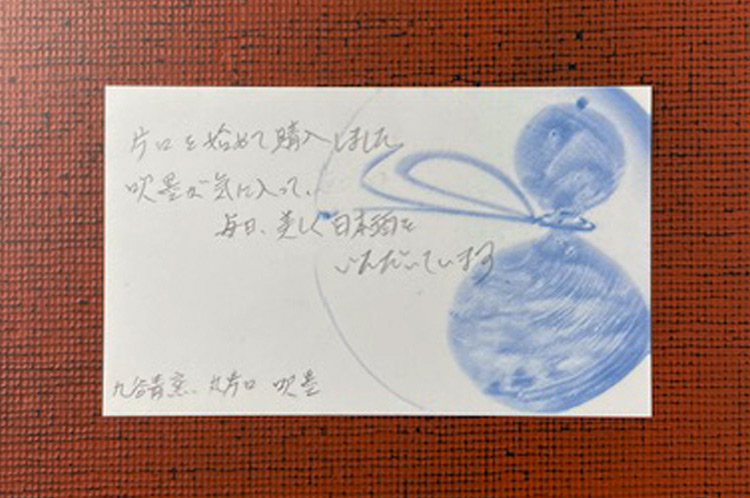 片口を始めて購入しました
吹墨が気に入って、
毎日、美しく日本酒を
いただいています
九谷青窯、丸片口 吹墨